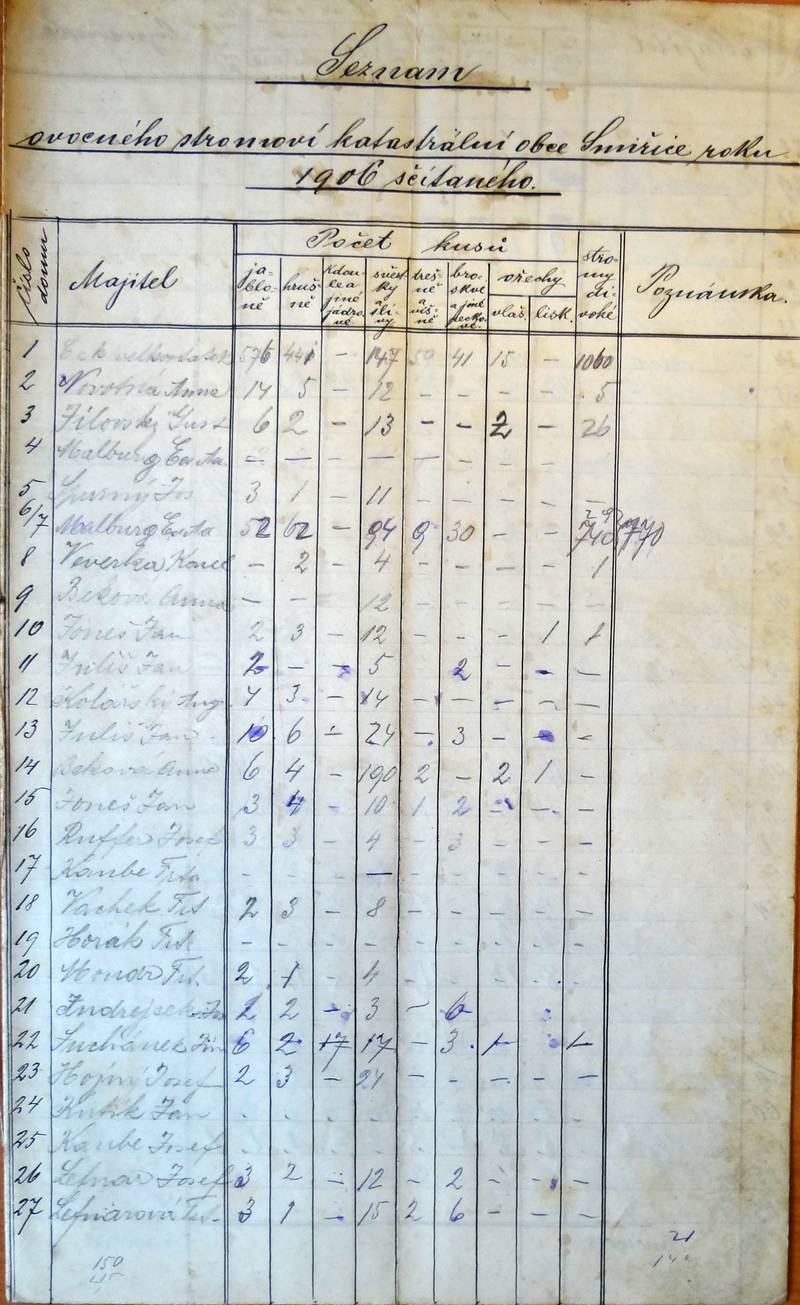 Seznam
ovocného stromoví katastrální obce Smiřice roku
1906 sčítaného.
číslo domu Majitel Počet kusů stromy divoké Poznámka.
jabloně hrušně kdoule a jiné jádrové švestky a slívy třešně a višně broskve a jiné peckové ořechy
vlaš. lísk.
1 576 441 – 147 50 41 15 – 1060
2 Novotná Anna 14 5 – 12 – – – – 5
3 Filovský Gust 6 2 – 13 – – 2 – 26
4 Malburg – – – – – – – –
5 Spurný Jos 3 1 – 11 – – – – –
6/7 Malburg 52 62 – 94 9 30 – – 740 770
8 Veverka Karel – 2 – 4 – – – – 1
9 Beková Anna – – 12 – – – – –
10 Joneš Jan 2 3 – 12 – – – 1 1
11 Juliš Jan 2 – – 5 2 – – –
12 Kolářský Aug. 4 3 – 14 – – – – –
13 Juliš Jan 10 6 – 24 – 3 – – –
14 Beková Anna 6 4 – 190 2 – 2 1 –
15 Joneš Jan 3 4 – 10 1 2 – – –
16 Ruffer Josef 3 3 – 4 – 3 – – –
17 Kaube – – – – – – – – –
18 Vachek Frt 2 3 – 8 – – – – –
19 Horák Frt – – – – – – – – –
20 Moudr Frt. 2 1 – 4 – – – –
21 Jndrejsek 2 2 – 3 – 6
22 Suchánek 6 2 17 17 – 3 1 1
23 Hojný Josef 2 3 – 24 – – – – –
24 Kutík Jan
25 Kaube Josef
26 Lefnar Josef 3 2 – 12 – 2 – – –
27 Lefnárová Frt. 3 1 – 15 2 6 – – –
150
45
21